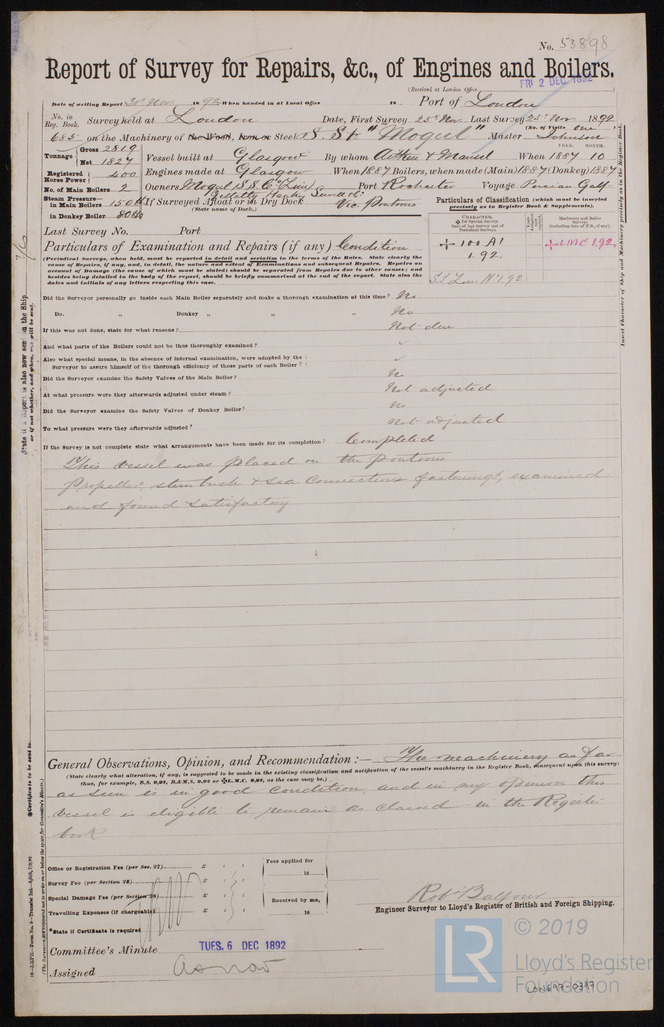 No. 53898
Report of Survey for Repairs, &c., of Engines and Boilers.
(Received at London Office FRI 2 DEC 1892
Date of writing Report 30 Nov 1892 When handed in at Local Office 18 Port of London
No. in Reg. Book. Survey held at London Date, First Survey 25 Nov Last Survey 25 Nov 1892
(No. of Visits one)
683 on the Machinery of the Wood, Iron or Steel S. St "Mogul" Master Johnson
Tonnage Gross 2819
Net 1827
Vessel built at Glasgow By whom Aitken & Mansel When 1887 10
YEAR. MONTH.
Registered Horse Power 400 Engines made at Glasgow When 1887 Boilers, when made (Main) 1887 (Donkey) 1887
No. of Main Boilers 2 Owners Mogul S S Co Port Rochester Voyage Persian Gulf
Steam Pressure in Main Boilers 150 lb If Surveyed Afloat or in Dry Dock Vic. Pontoons
(State name of Dock.)
in Donkey Boiler 80 lb
Particulars of Classification (which must be inserted precisely as in Register Book & Supplements).
CHARACTER.
100 A1
1.92.
LMC 1,92,
Last Survey No. Port
Particulars of Examination and Repairs (if any) Condition
(Periodical Surveys, when held, must be reported in detail and seriatim in the terms of the Rules. State clearly the
cause of Repairs, if any, and, in detail, the nature and extent of Examinations and subsequent Repairs. Repairs on
account of Damage (the cause of which must be stated) should be separated from Repairs due to other causes; and
besides being detailed in the body of the report, should be briefly summarised at the end of the report. State also the
dates and initials of any letters respecting this case.
Did the Surveyor personally go inside each Main Boiler separately and make a thorough examination at this time? No
Do. „ Donkey „ „ „ No
If this was not done, state for what reasons? Not due
And what parts of the Boilers could not be thus thoroughly examined?
Also what special means, in the absence of internal examination, were adopted by the
Surveyor to assure himself of the thorough efficiency of those parts of each Boiler?
Did the Surveyor examine the Safety Valves of the Main Boiler? No
At what pressure were they afterwards adjusted under steam? Not adjusted
Did the Surveyor examine the Safety Valves of Donkey Boiler? No
To what pressure were they afterwards adjusted? Not adjusted
If the Survey is not complete state what arrangements have been made for its completion? Completed
This vessel was placed on the pontoons
Propeller, stern bush & sea connections fastenings, examined
and found satisfactory
General Observations, Opinion, and Recommendation :— The machinery as far
(State clearly what alteration, if any, is suggested to be made in the existing classification and notification of the vessel's machinery in the Register Book, consequent upon this survey:
thus, for example, B.S. 9,92, B.&M.S. 9,92 or L.M.C. 9,92, as the case may be.)
as seen is in good condition, and in my opinion this
vessel is eligible to remain as classed in the Register
book
Office or Registration Fee (per Sec. 27) £ : :
Survey Fee (per Section 28) £ : :
Special Damage Fee (per Section 28) £ : :
Travelling Expenses (if chargeable) £ : :
Fees applied for
18
Received by me,
18
*State if Certificate is required
Robt Balfour
Engineer Surveyor to Lloyd's Register of British and Foreign Shipping.
Committee's Minute TUES. 6 DEC 1892
Assigned as now
LR
© 2019
Lloyd's Register
Foundation
LON697-0397